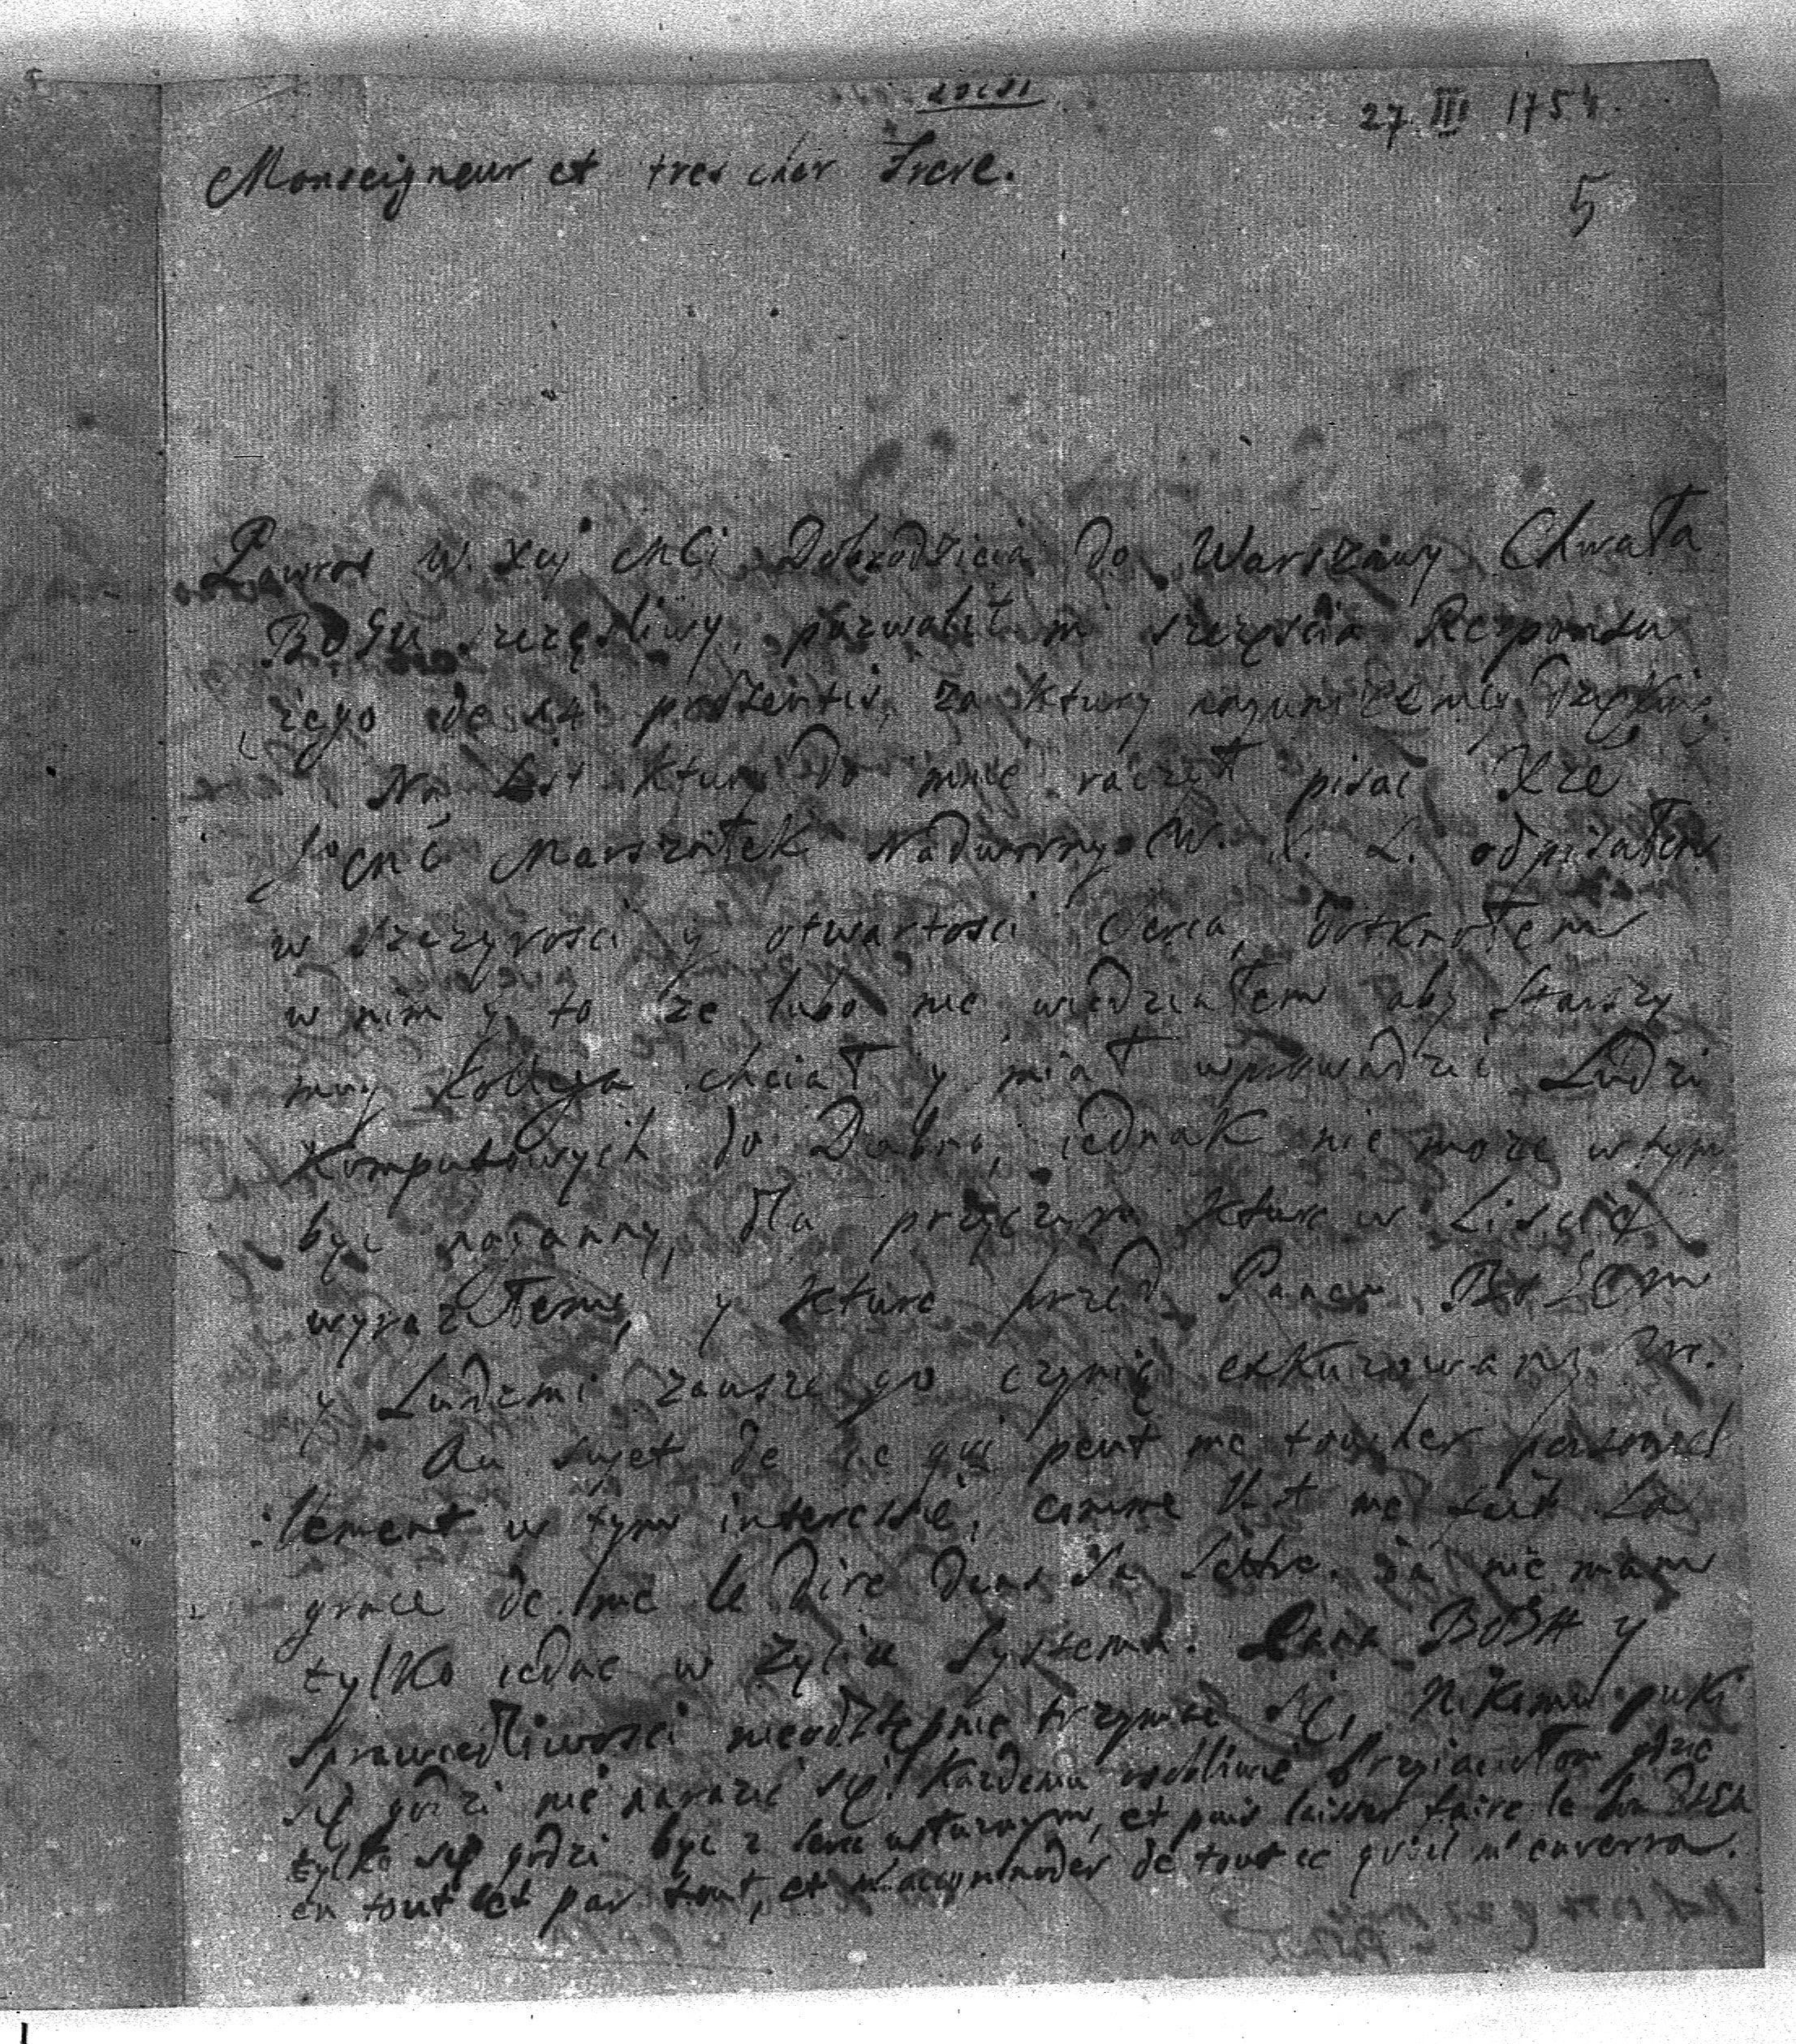 27. III 1754.
Monseigneur et tres cher Frere.
5
Powrot W. Xcy Mci Dobrodzieia do Warszawy Chwała
BOGU szczęsliwy, pozwolił mi szczęscia Responsu
iego de 14 praesentis, za ktury
Na List ktury do mnie raczył pisac Xże
Jo Mć Marszałek Nadworny W. X. L. odpisałem
w szczyrosci y otwartosci serca, dotknołem
w nim y to że lubo nie wiedziałem aby Starszy
muy Kollega chciał y miał wprowadzić Ludzi
Komputowych do Dubna, iednak nie może w tym
byc naganny, dla przyczyn kture w Liscie
wyraziłem, y kture przed Panem BOGiem
y Ludzmi zawsze go czynią exkuzowany
Au sujet de ce qui peut me toucher personel
lement w tym interessie, comme V. A. me fait La
grace de me le dire dans sa Lettre. Ja nie mam
tylko iedne w życiu Systema. Pana BOGA y
sprawiedliwosci nieodstępnie trzymac się, Nikomu puki
się godzi nie narazić się. Każdemu osobliwie Przyiaciołom gdzie
tylko się godzi byc z serca usłużnym, et puis laisser faire le bon DIEU
en tout et par tout, et m'accommoder de tout ce qu'il m'enverra.